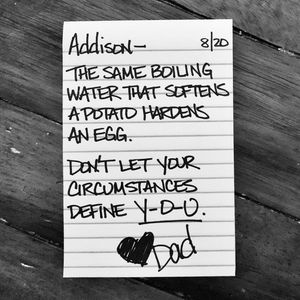 Addison— 8/20
THE SAME BOILING
WATER THAT SOFTENS
A POTATO HARDENS
AN EGG.
DON'T LET YOUR
CIRCUMSTANCES
DEFINE Y-O-U.
Dad